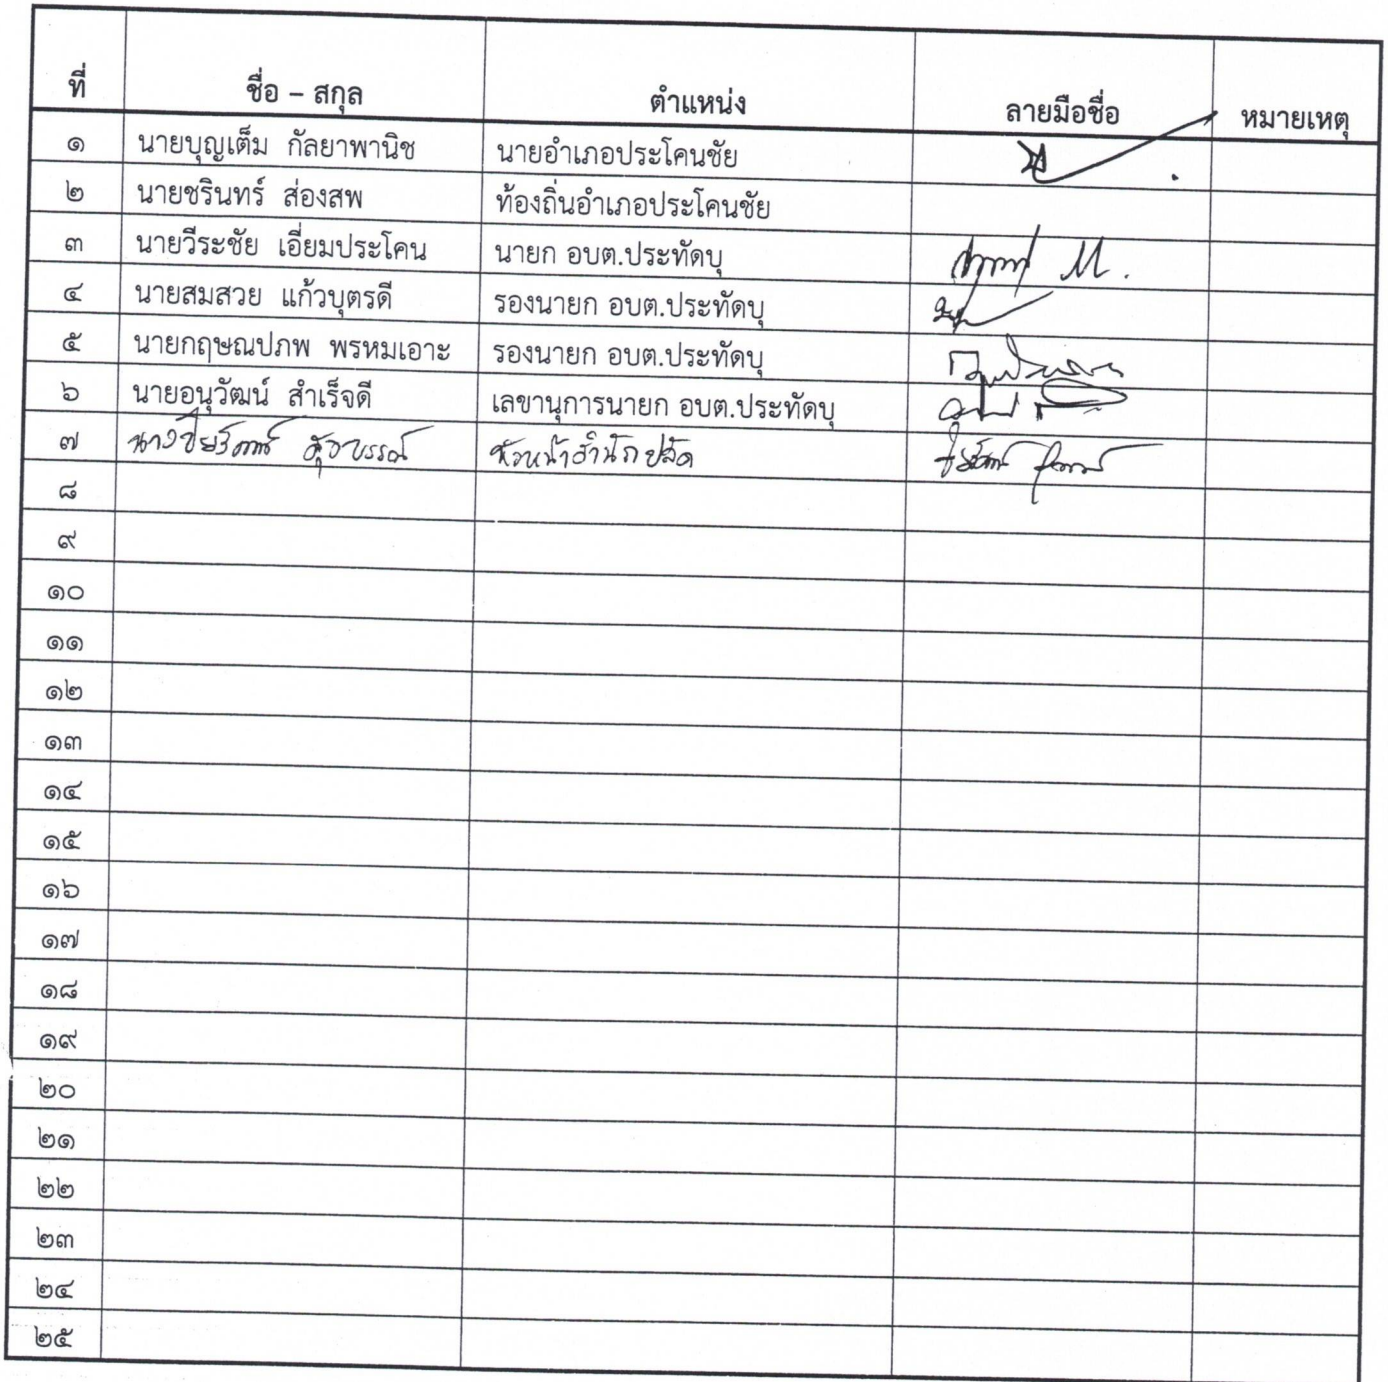 ที่ ชื่อ – สกุล ตำแหน่ง ลายมือชื่อ หมายเหตุ
๑ นายบุญเต็ม กัลยาพานิช นายอำเภอประโคนชัย
๒ นายชรินทร์ ส่องสพ ท้องถิ่นอำเภอประโคนชัย
๓ นายวีระชัย เอี่ยมประโคน นายก อบต.ประทัดบุ
๔ นายสมสวย แก้วบุตรดี รองนายก อบต.ประทัดบุ
๕ นายกฤษณปภพ พรหมเอาะ รองนายก อบต.ประทัดบุ
๖ นายอนุวัฒน์ สำเร็จดี เลขานุการนายก อบต.ประทัดบุ
๗ หัวหน้าสำนักปลัด
๘
๙
๑๐
๑๑
๑๒
๑๓
๑๔
๑๕
๑๖
๑๗
๑๘
๑๙
๒๐
๒๑
๒๒
๒๓
๒๔
๒๕